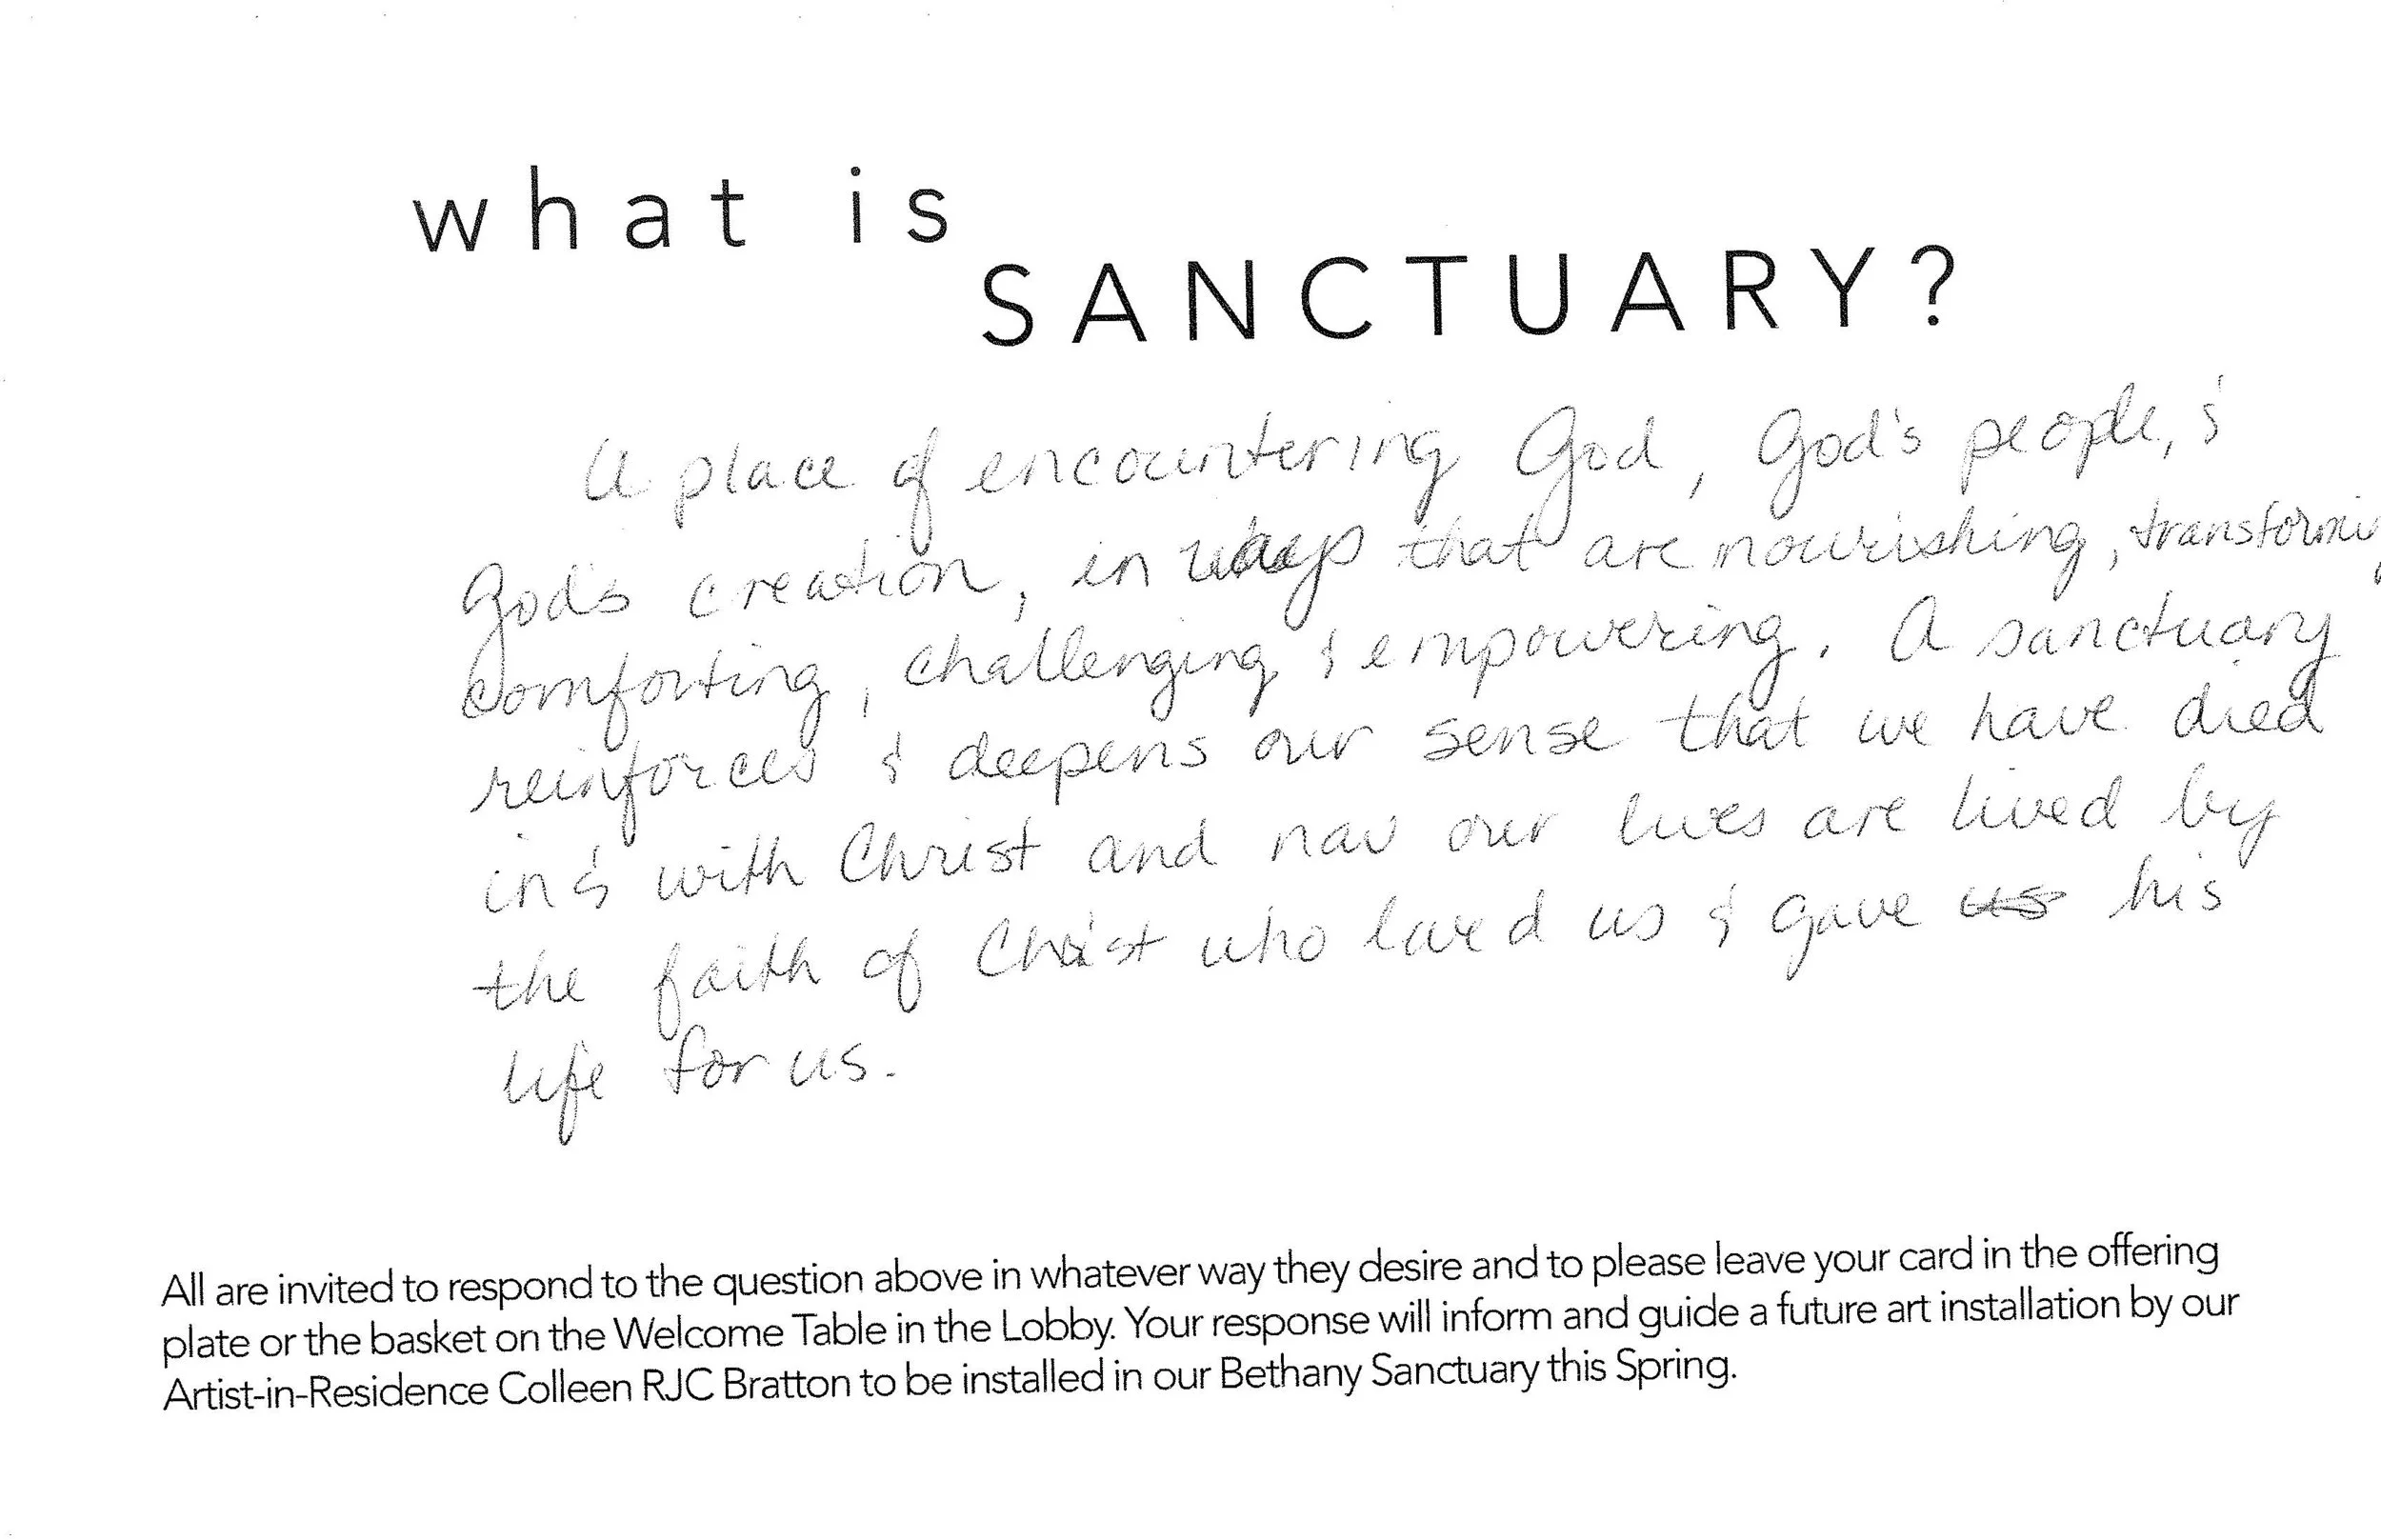 what is
SANCTUARY?
A place of encountering God, God's people, &
God's creation, in ways that are nourishing, transformi
comforting, challenging & empowering. A sanctuary
reinforces & deepens our sense that we have died
in & with Christ and now our lives are lived by
the faith of Christ who loved us & gave us his
life for us.
All are invited to respond to the question above in whatever way they desire and to please leave your card in the offering
plate or the basket on the Welcome Table in the Lobby. Your response will inform and guide a future art installation by our
Artist-in-Residence Colleen RJC Bratton to be installed in our Bethany Sanctuary this Spring.